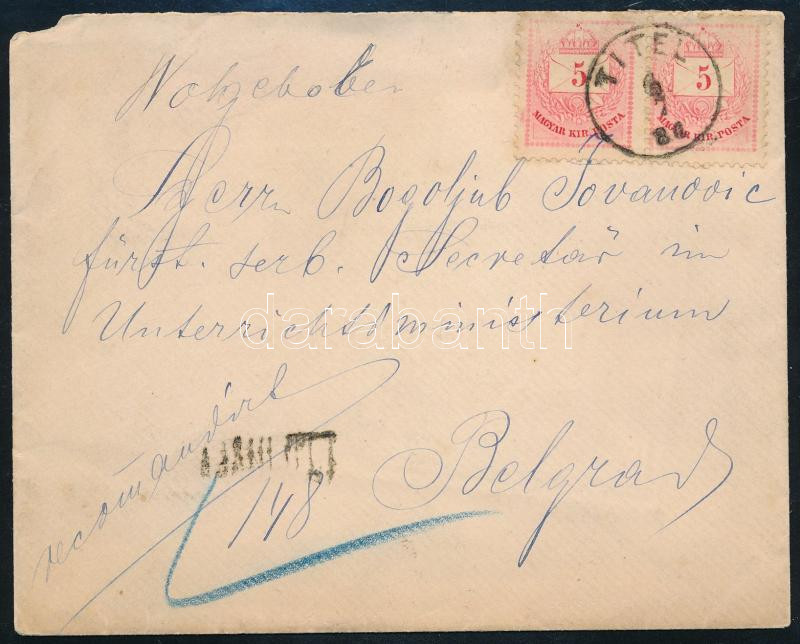 5 5
MAGYAR KIR. POSTA MAGYAR KIR. POSTA
TITEL
Wohgeboren
Herrn Bogoljub Jovanovic
fürstl. serb. Secretär im
Unterrichtsministerium
recomandirt
148
Belgrad
darabanth